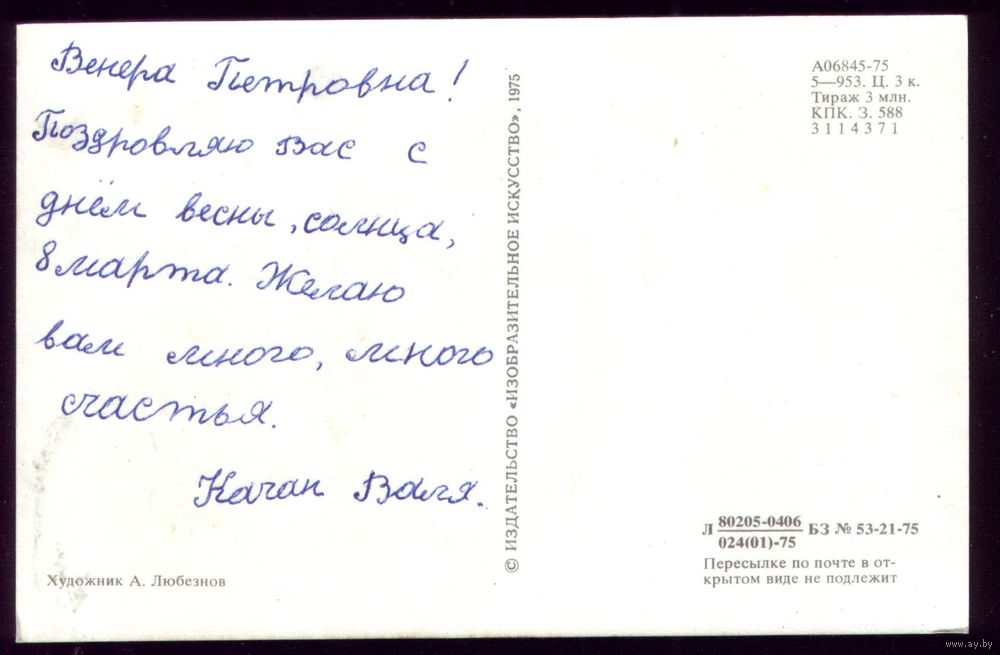 Венера Петровна!
Поздровляю Вас с
днём весны, солнца,
8 марта. Желаю
вам много, много
счастья.
Качан Валя.
Художник А. Любезнов
© ИЗДАТЕЛЬСТВО «ИЗОБРАЗИТЕЛЬНОЕ ИСКУССТВО», 1975
А06845-75
5—953. Ц. 3 к.
Тираж 3 млн.
КПК. З. 588
3 1 1 4 3 7 1
Л 80205-0406 БЗ № 53-21-75
024(01)-75
Пересылке по почте в от-
крытом виде не подлежит
www.ay.by